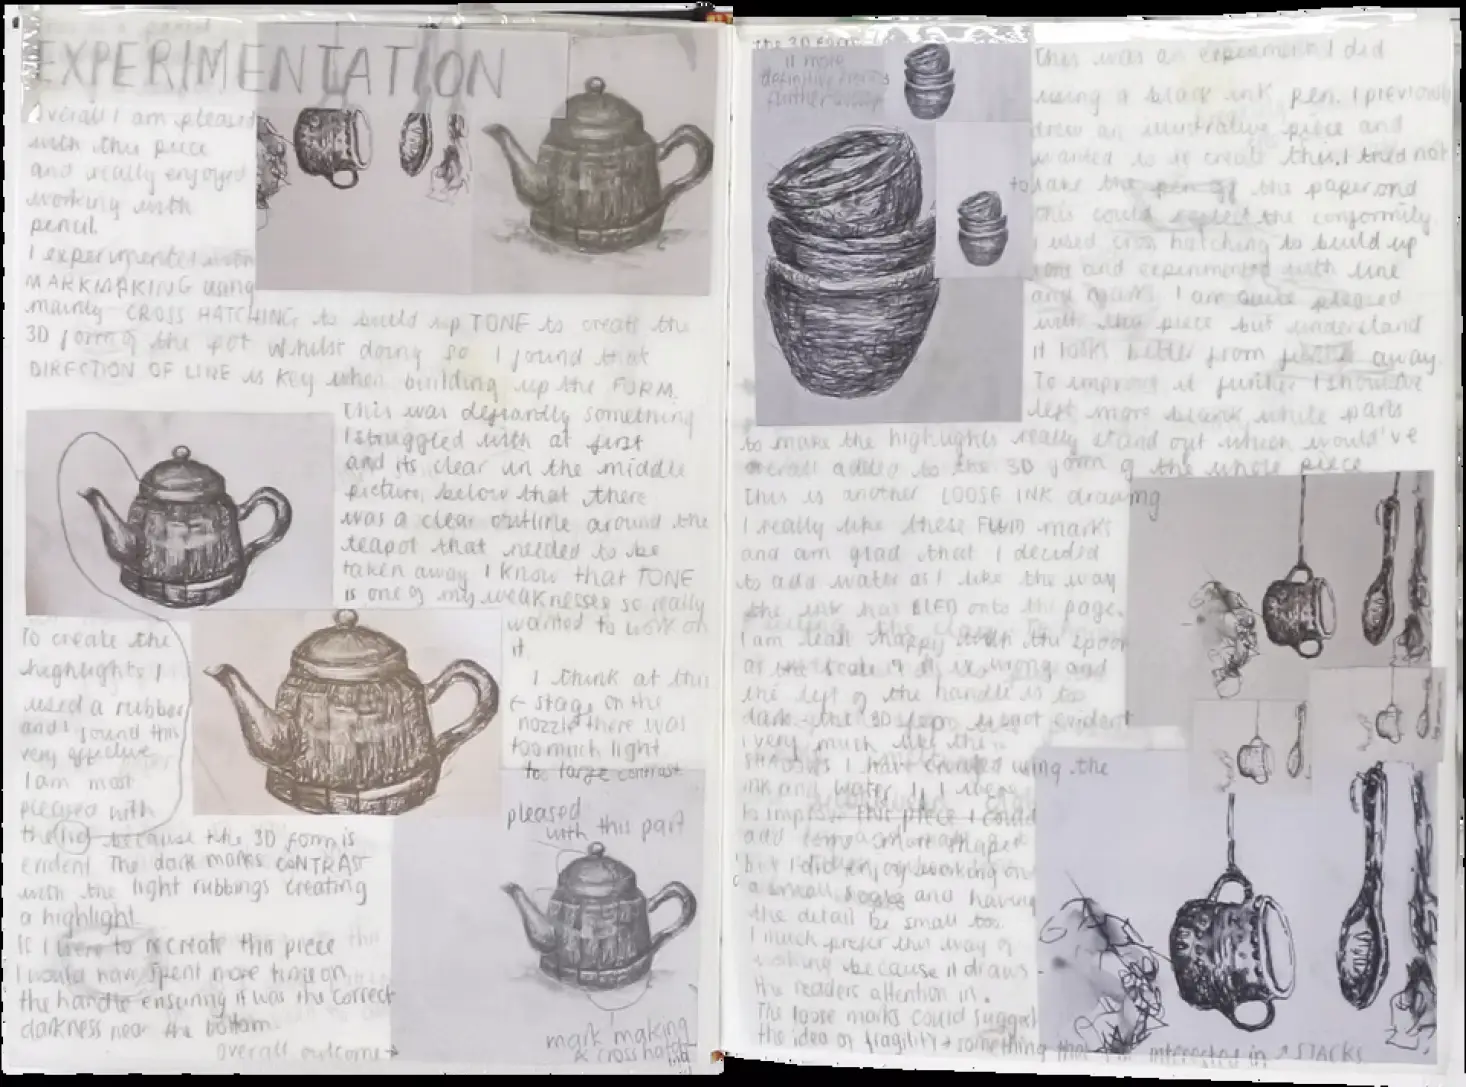 EXPERIMENTATION
Overall I am pleased
with this piece
and really enjoyed
working with
pencil.
I experimented with
MARKMAKING using
mainly CROSS HATCHING to build up TONE to create the
3D form of the pot whilst doing so I found that
DIRECTION OF LINE is KEY when building up the FORM.
This was defiantly something
I struggled with at first
and its clear in the middle
picture, below that there
was a clear outline around the
teapot that needed to be
taken away I know that TONE
is one of my weaknesses so really
wanted to work on
it.
I think at this
← stage on the
nozzle there was
too much light
to large contrast
To create the
highlights I
used a rubber
and I found this
very effective
I am most
pleased with
the lid because the 3D form is
evident The dark marks CONTRAST
with the light rubbings creating
a highlight.
If I were to recreate this piece
I would have spent more time on
the handle ensuring it was the correct
darkness near the bottom.
overall outcome→
pleased
with this part
mark making
& cross hatching
the 3D form
it more
definitive
further
This was an experiment I did
using a black ink pen. I previously
drew an illustrative piece and
wanted to re create this. I tried not
to take the pen off the paper and
this could reflect the conformity.
I used cross hatching to build up
tone and experimented with line
and marks. I am quite pleased
with this piece but understand
it looks better from further away.
To improve it further I should've
left more blank white parts
to make the highlights really stand out which would've
overall added to the 3D form of the whole piece
This is another LOOSE INK drawing
I really like these FLUID marks
and am glad that I decided
to add water as I like the way
the ink has BLED onto the page.
I am least happy with the spoon
as the scale of it is wrong and
the left of the handle is too
dark - the 3D form is not evident
I very much like the
SHADOWS I have created using the
ink and water. If I were
to improve this piece I could
add
but I did enjoy working on
a small scale and having
the detail be small too.
I much prefer this way of
working because it draws
the readers attention in.
The loose marks could suggest
the idea of fragility → something that I'm interested in ↗ STACKS